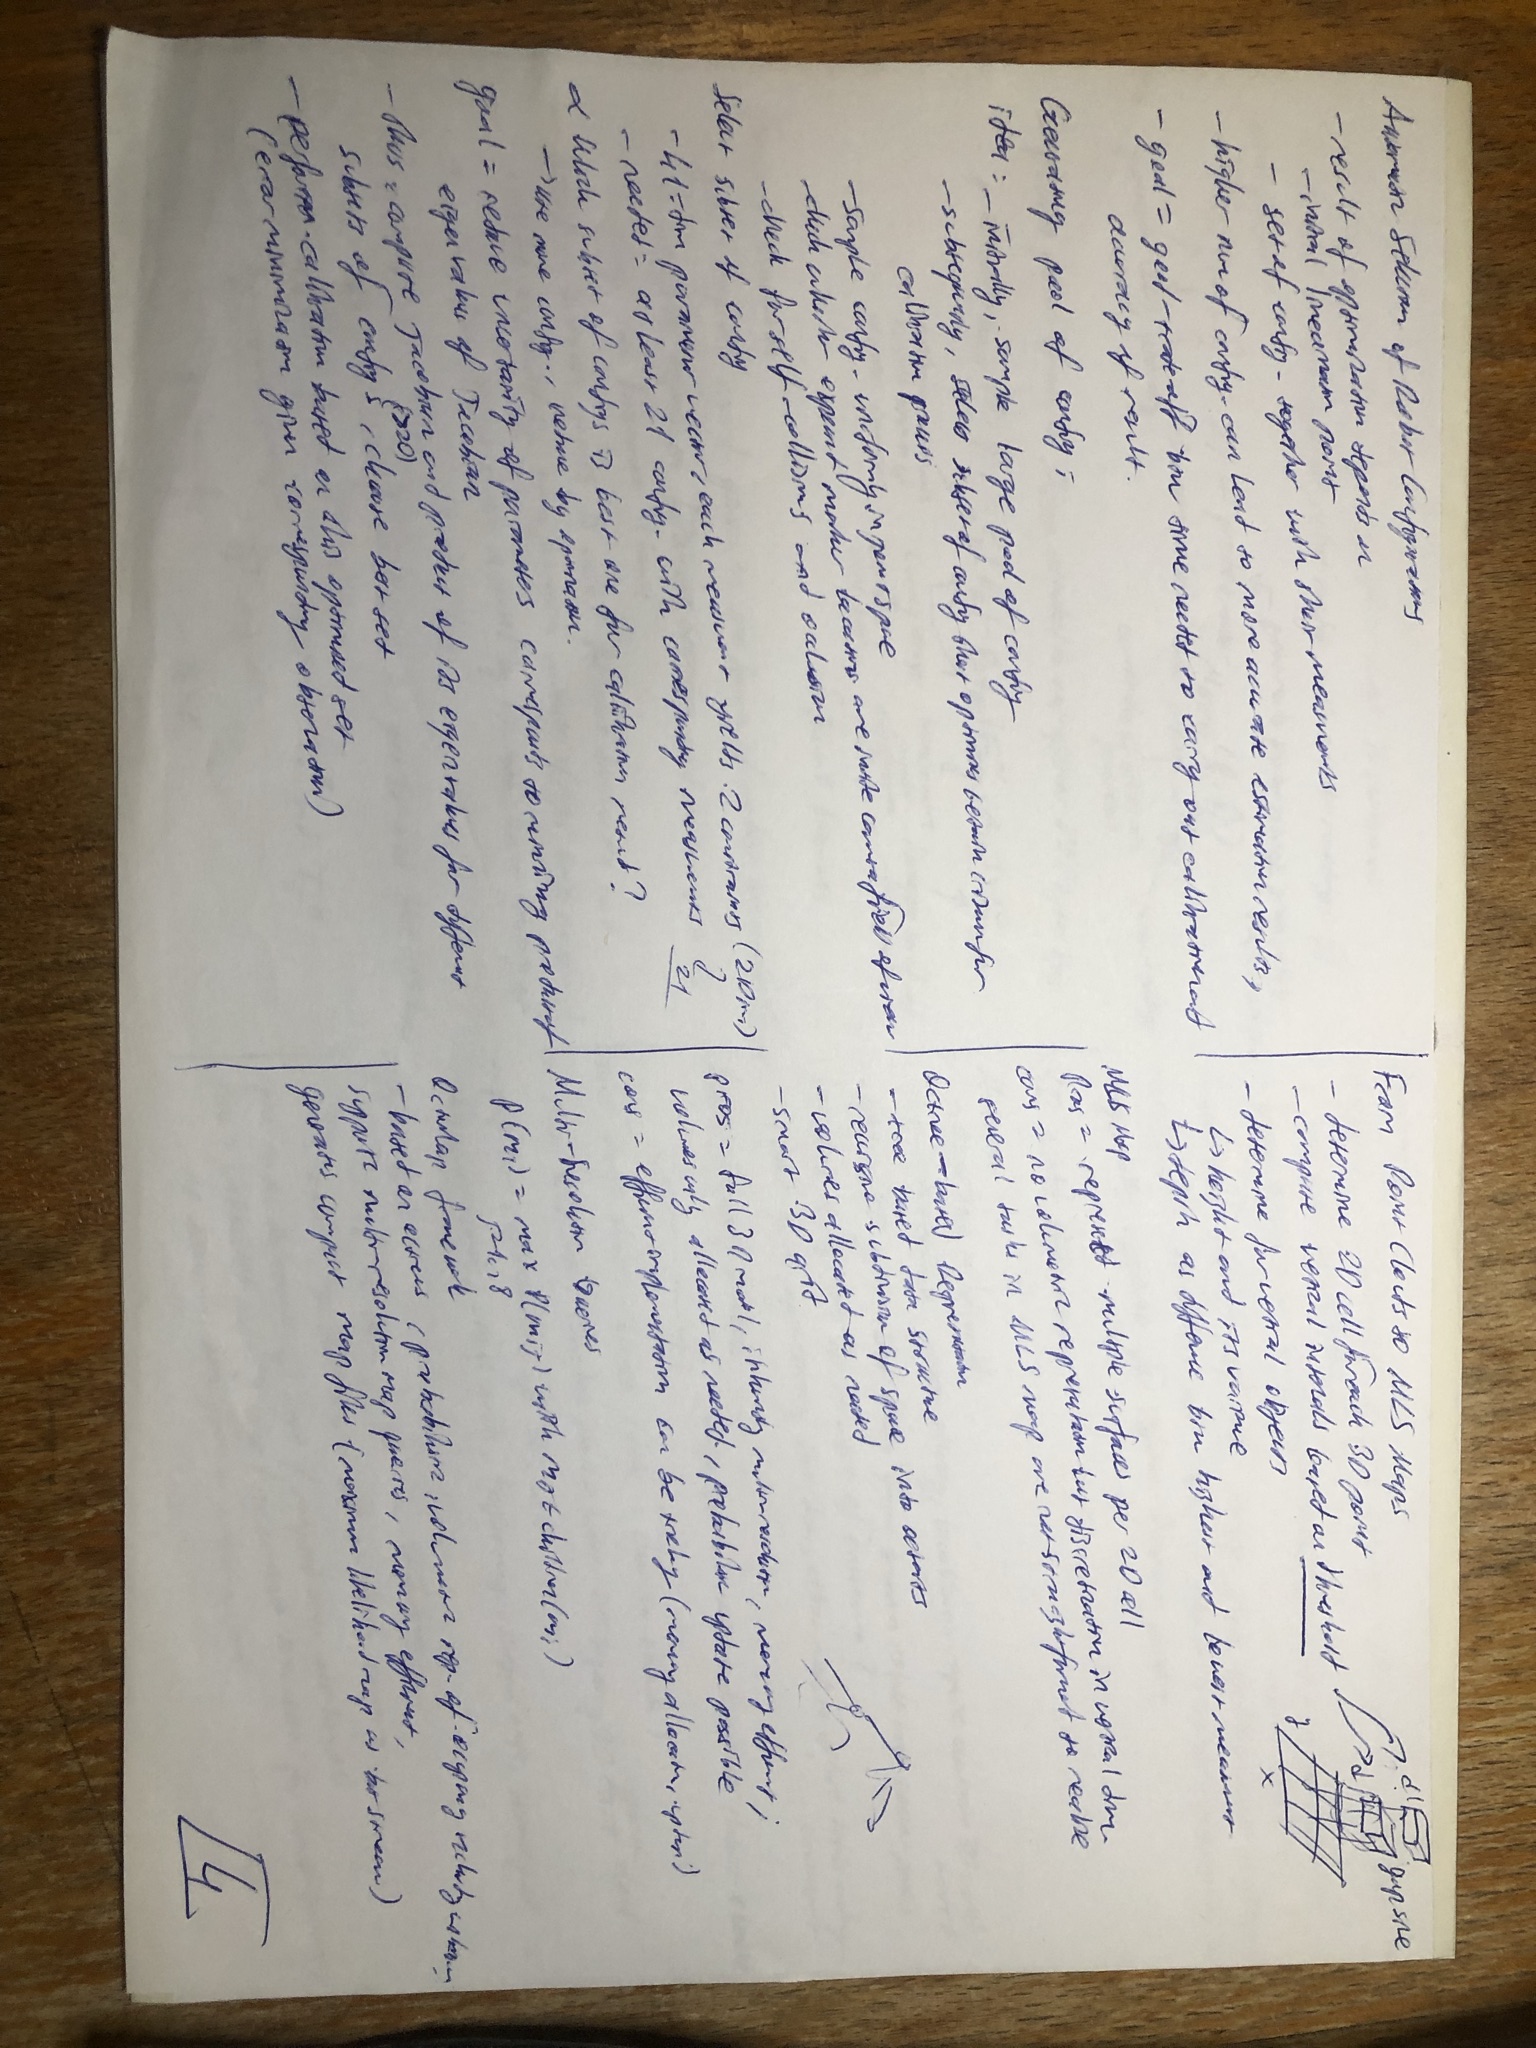 Automatic Selection of Robot Configurations
- result of optimization depends on
- initial parameter point
- set of config. together with their measurements
- higher num of config. can lead to more accurate estimation results,
- goal = good trade-off btw time needed to carry out calibration and
accuracy of result.
Generating pool of config:
idea: - initially, sample large pool of config
- subsequently, select subset of config that optimizes
calibration
- sample config. uniformly in
- check whether expected marker locations are inside camera field of view
- check for self-collisions and occlusion
Select subset of config
- 41-dim parameter vector, each measurement yields 2 constraints (2Dim)
- needed: at least 21 config. with corresponding measurements
21
Which subset of configs is best one for calibration result?
→ use more config., reduce by
goal = reduce uncertainty of parameters corresponds to product of
eigenvalues of Jacobian
- Thus: compute Jacobian and product of its eigenvalues for different
subsets of config (>20), choose best set
- perform calibration based on this optimized set
(error minimization given corresponding observation)
From Point Clouds to MLS Maps
- determine 2D cell for each 3D point
- compute vertical intervals based on threshold
gap size
z
x
- determine for vertical objects
↳ height and its variance
↳ depth as difference btw highest and lowest measurement
MLS Map
Pros = represent multiple surfaces per 2D cell
cons = no volumetric representation but discretization in vertical dim-
several tasks in MLS map are not straightforward to realize
Octree-based Representation
- tree based data structure
- recursive subdivision of space into octants
- volumes allocated as needed
- smart 3D grid
pros = full 3D model, inherently multi-resolution, memory efficient;
volumes only allocated as needed, probabilistic update possible
cons = efficient implementation can be tricky (memory allocation, update)
Multi-Resolution Queries
p(mi) = max p(mij) with mij ∈ children(mi)
j=1..8
OctoMap framework
- based on octrees, probabilistic, volumetric rep. of occupancy including unknown
supports multi-resolution map queries, memory efficient,
generates compact map files (maximum likelihood map as bit stream)
4